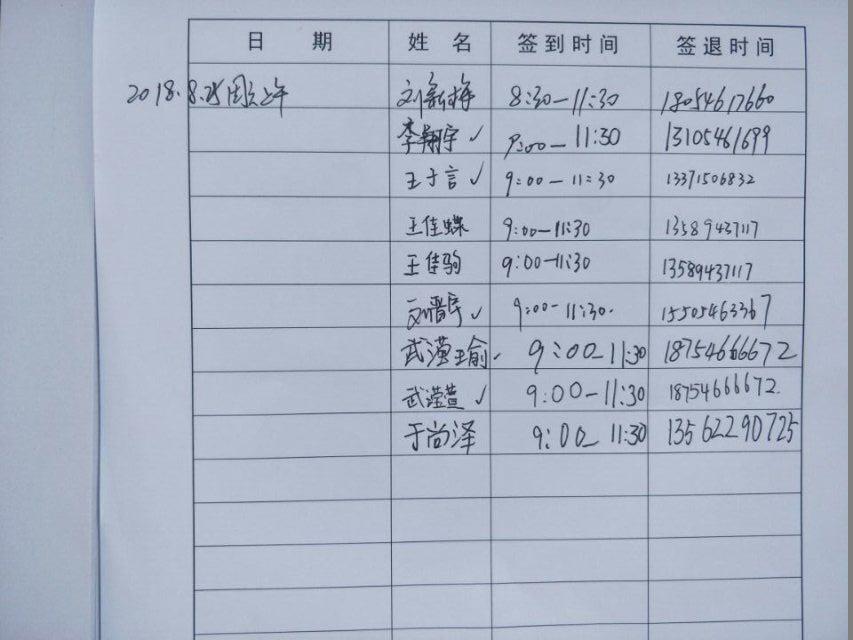 日 期 姓 名 签到时间 签退时间
2018.8.25周六上午 刘新梅 8:30-11:30 18054617660
李翔宇✓ 9:00- 11:30 13105461699
王于言✓ 9:00-11:30 13371506832
王佳蝶 9:00-11:30 13589437117
王佳驹 9:00-11:30 13589437117
刘晋宇✓ 9:00-11:30. 15505463367
武滢瑜. 9:00-11:30 18754666672
武滢萱✓ 9:00-11:30 18754666672.
于尚泽 9:00-11:30 13562290725